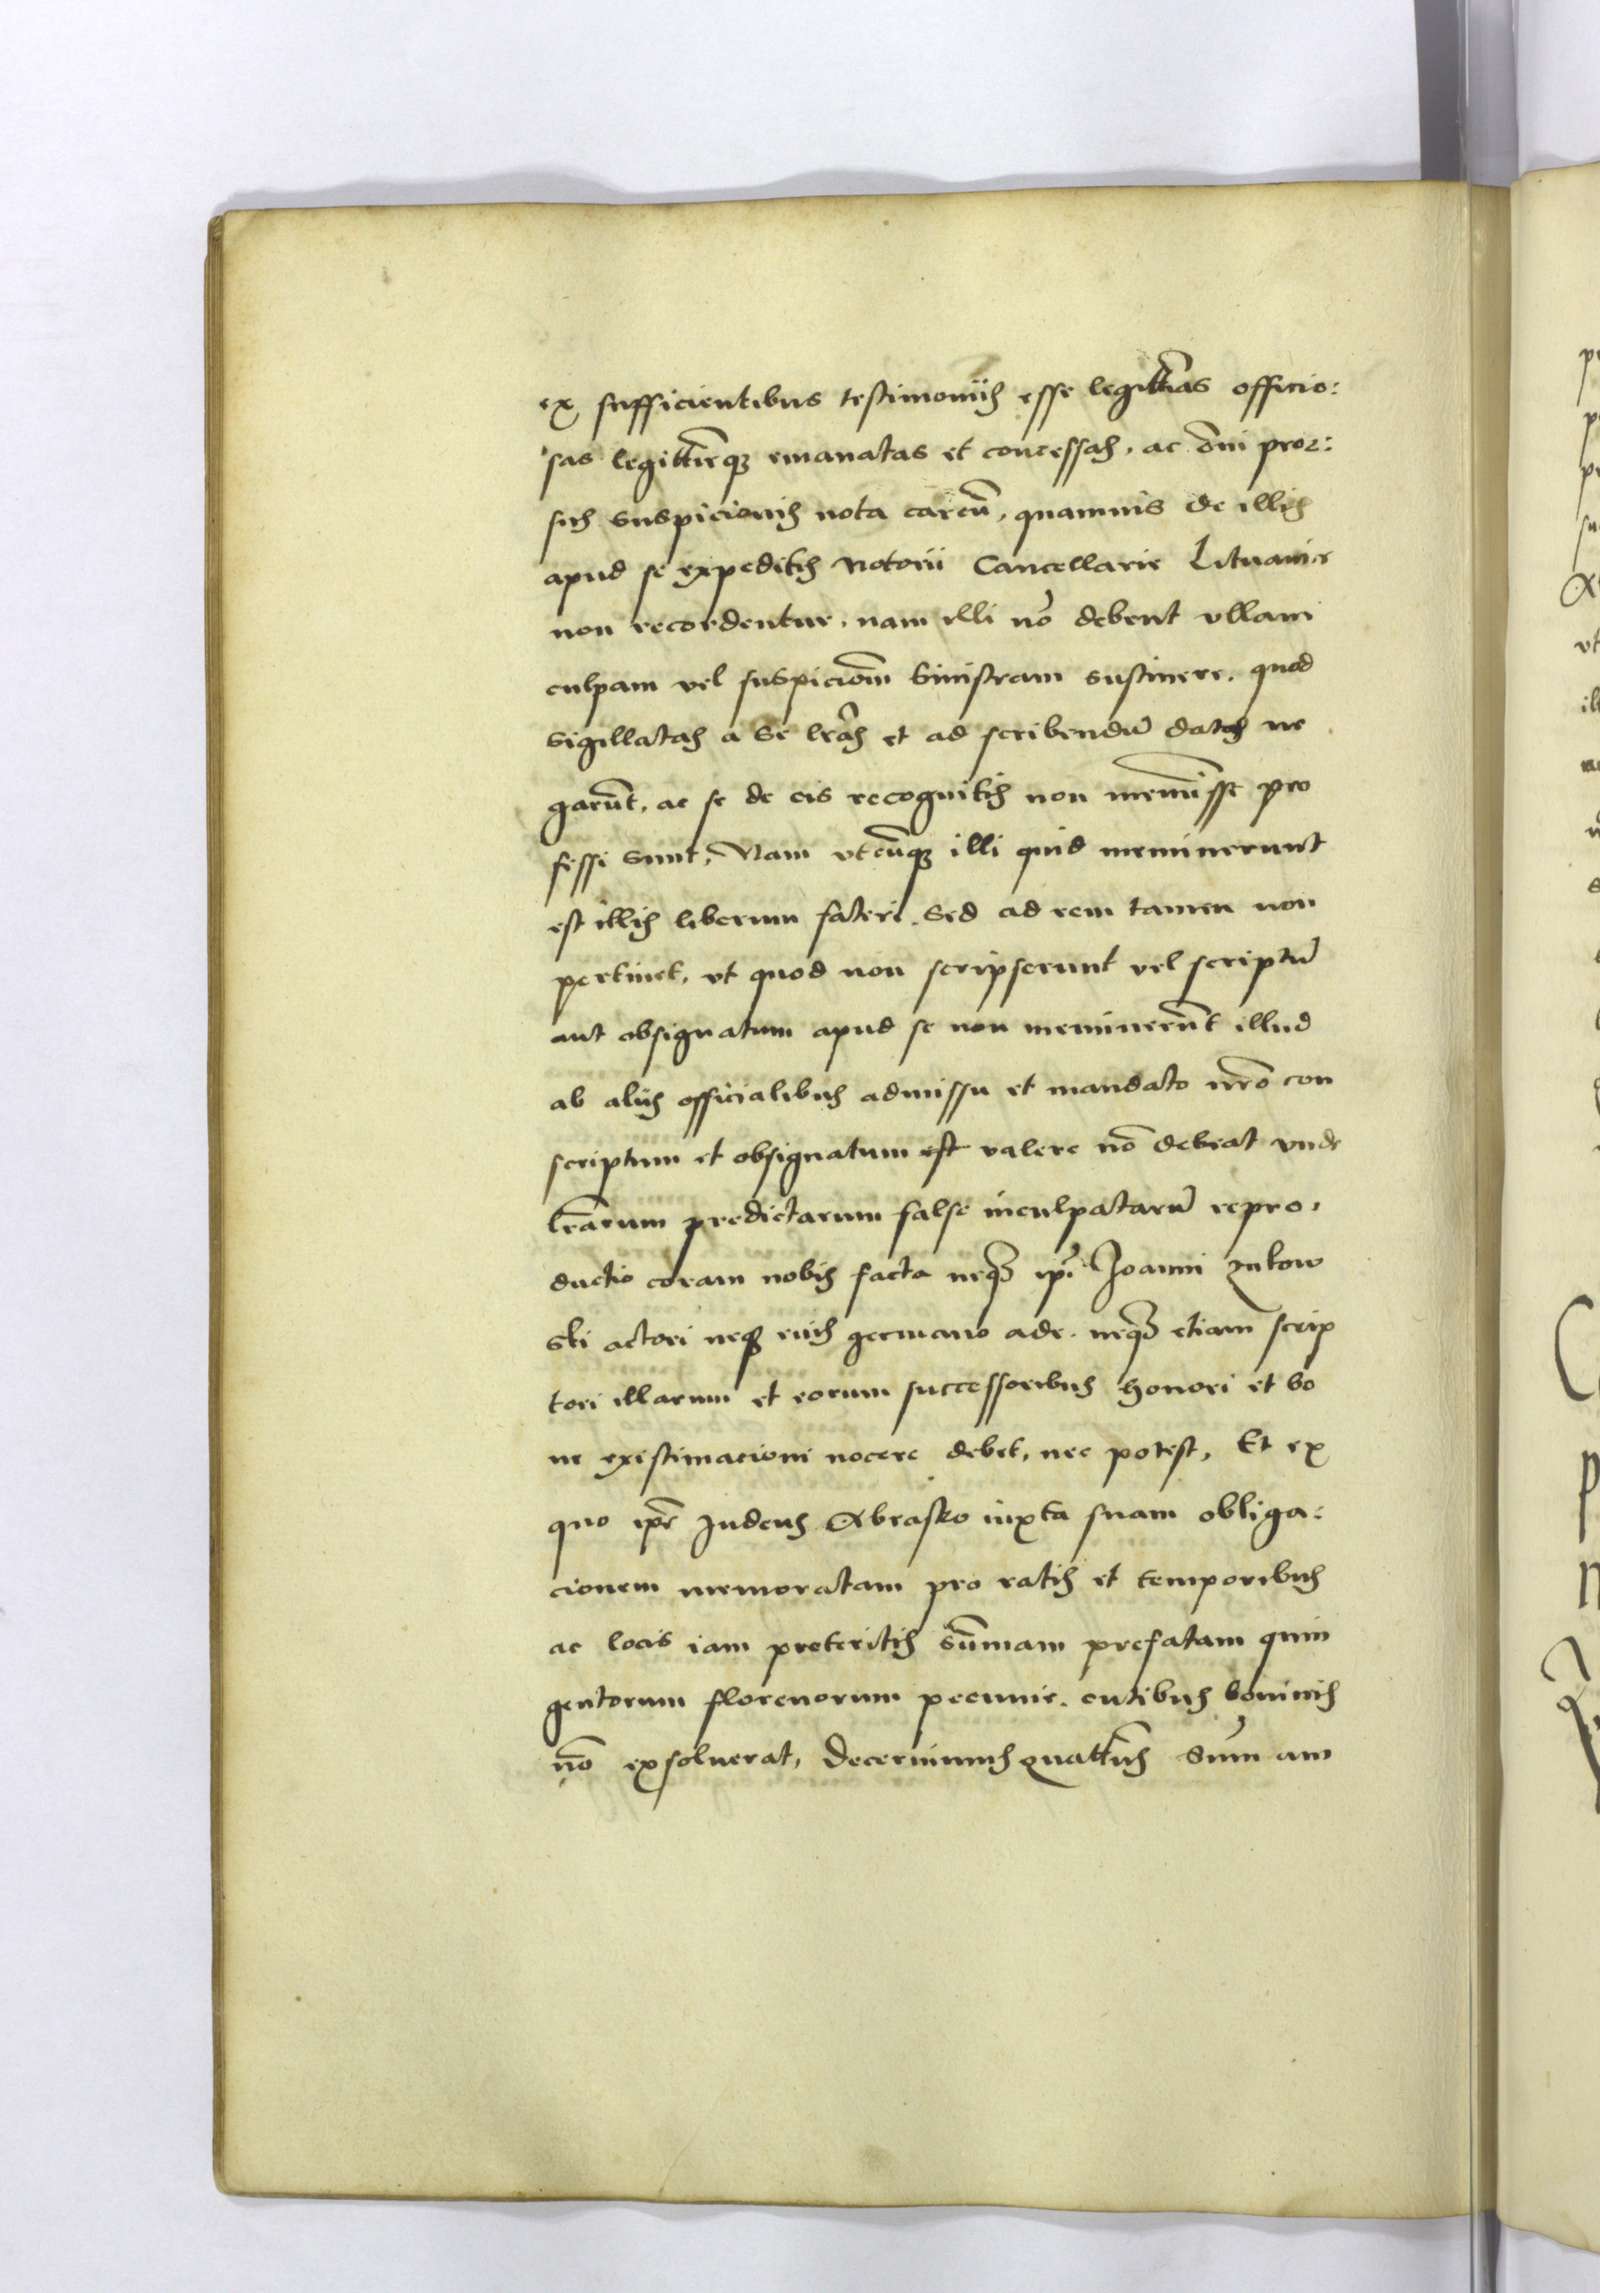 ex sufficientibus testimoniis esse legittimas officio:
sas legittimeq emanatas et concessas, ac omni pror:
sus suspicionis nota carcū, quamuis de illis
apud se expeditis Notorii Cancellarie Lituanie
non recordentur, nam illi nō debent vllam
culpam vel suspiciom̄ sinistram sustinere, quod
sigillatas a se lrās et ad scribendū datas ne
garūt, ac se de eis recognitis non meminisse pro
fessi sunt, Nam vtcūq illi quid meminerunt
est illis liberum fateri. Sed ad rem tamen non
pertinet, vt quod non scripserunt vel scriptū
aut obsignatum apud se non meminerūt illud
ab aliis officialibus admissu et mandato nrō con
scriptum et obsignatum est valere nō debeat vnde
lrārum predictarum false inculpatarū repro,
ductio coram nobis facta neq ipī Joanni Zukow
ski actori neq eius germano ade. neq etiam scrip
tori illarum et eorum successoribus honori et bo
ne existimacioni nocere debet, nec potest, Et ex
quo ipē Judeus Abrasko iuxta suam obliga:
cionem memoratam pro ratis et temporibus
ac locis iam preteritis sūmam prefatam quin
gentorum florenorum pecunie. cutibus bouinis
nō exsoluerat, Decernimus quatt̄us Sūm am